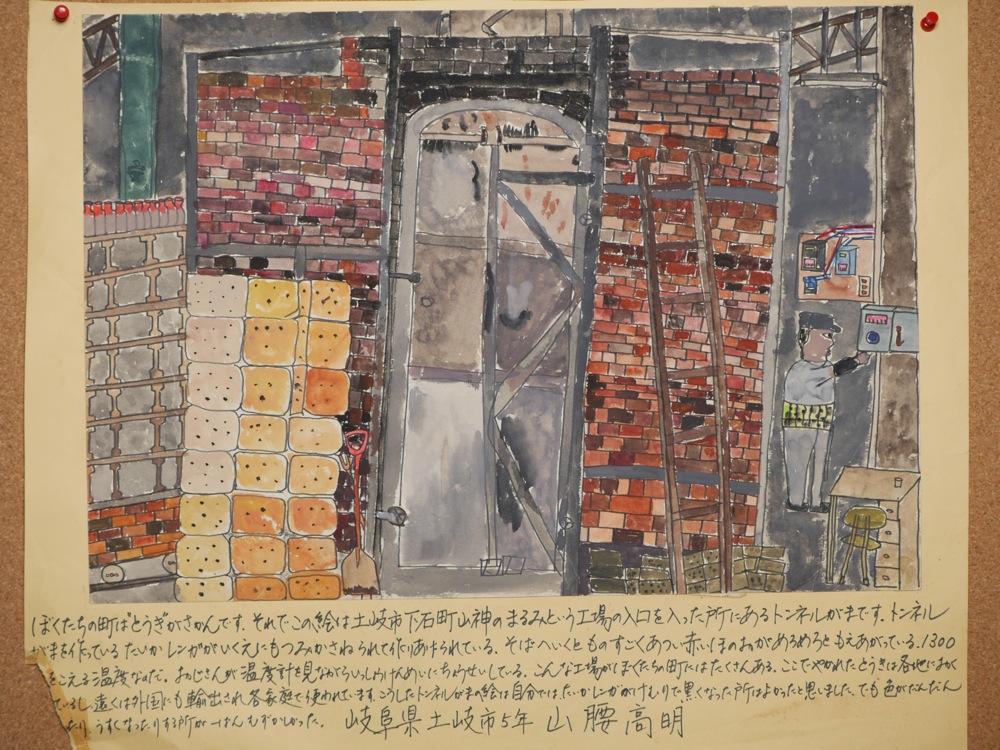 ぼくたちの町はとうぎがさかんです。それでこの絵は土岐市下石町山神のまるみという工場の入口を入った所にあるトンネルがまです。トンネル
がまを作っているたいかレンガがいくえにもつみかさねられて作りあげられている。そばへいくとものすごくあつい赤いほのおがめろめろともえあがっている。1300
をこえる温度なのだ。おじさんが温度計を見ながらいっしょけんめいにちょうせいしている。こんな工場がぼくたちの町にはたくさんある。ここでやかれたとうきは各地におく
ているし、遠くは外国にも輸出され各家庭で使われています。こうしたトンネルがまの絵は自分では、たいかレンガがけむりで黒くなった所はよかったと思いました。でも色がだんだん
たり、うすくなったりする所が一ばんむずかしかった。 岐阜県土岐市5年 山腰高明